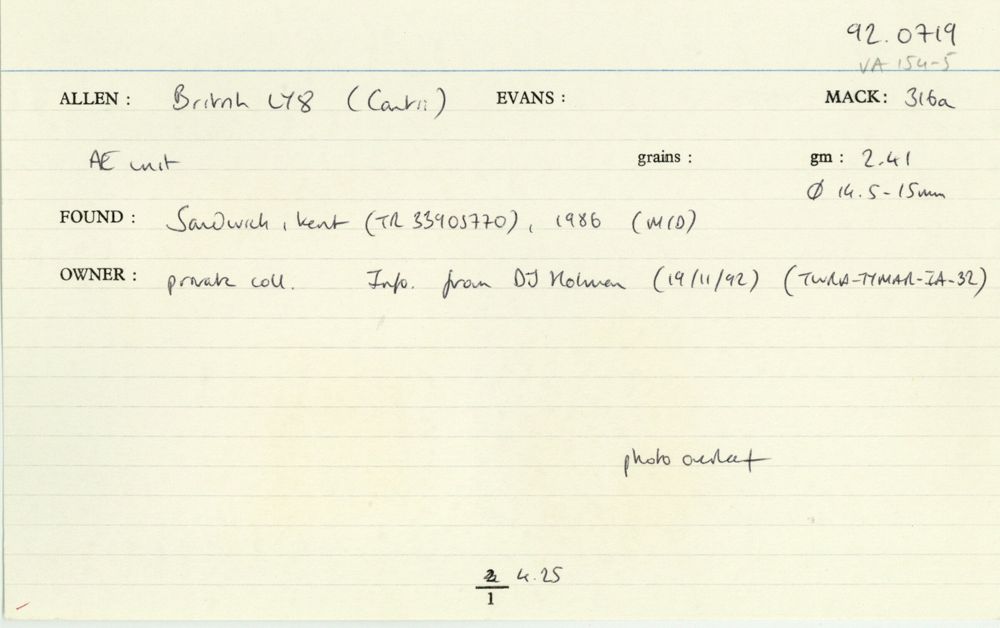 92.0719
VA 154-5
ALLEN : British LY8 (Cantii) EVANS : MACK: 316a
AE unit grains : gm : 2.41
Ø 14.5-15mm
FOUND : Sandwich, Kent (TR 33905770), 1986 (M/D)
OWNER : private coll. Info. from DJ Holman (19/11/92) (TWRA-TYMAR-IA-32)
photo overleaf
4.25
1